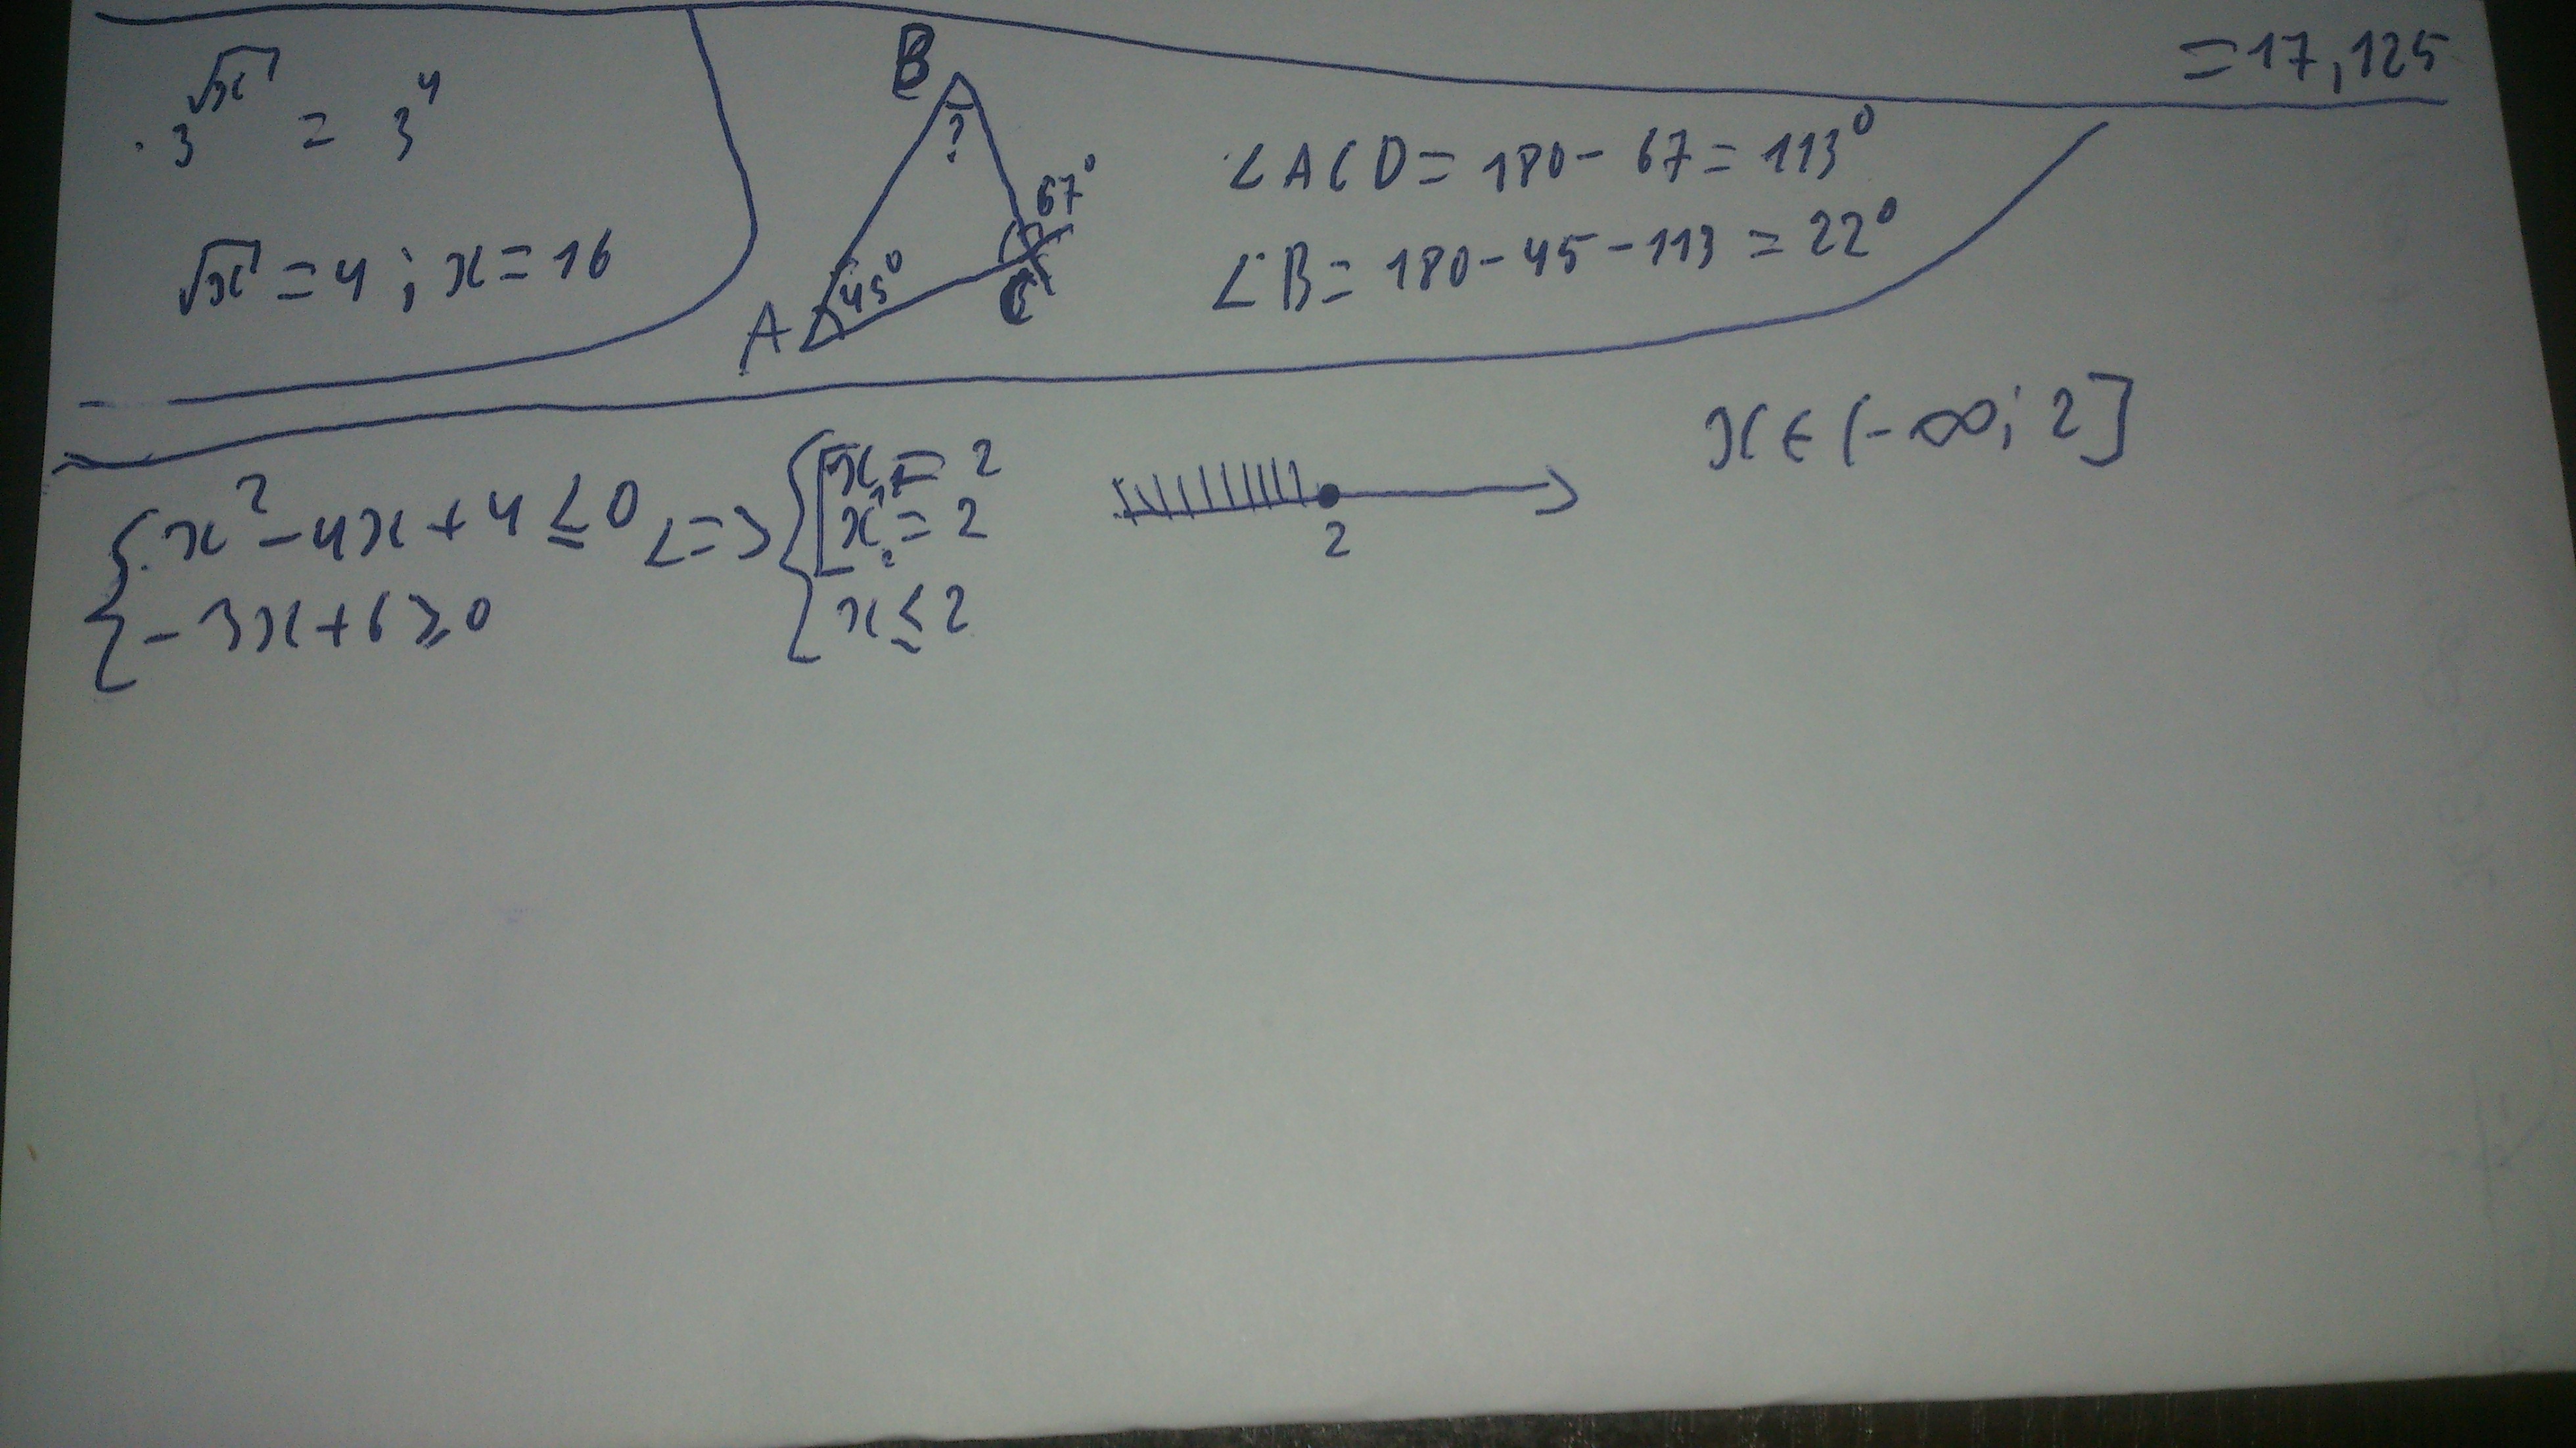 = 17,125
3^√x = 3^4
√x = 4 ; x = 16
B
?
67°
45°
A
C
∠ACD = 180 - 67 = 113°
∠B = 180 - 45 - 113 = 22°
{ x² - 4x + 4 ≤ 0 <=> { [ x₁ = 2
x₂ = 2
- 3x + 6 ≥ 0
x ≤ 2
2
x ∈ (-∞; 2]